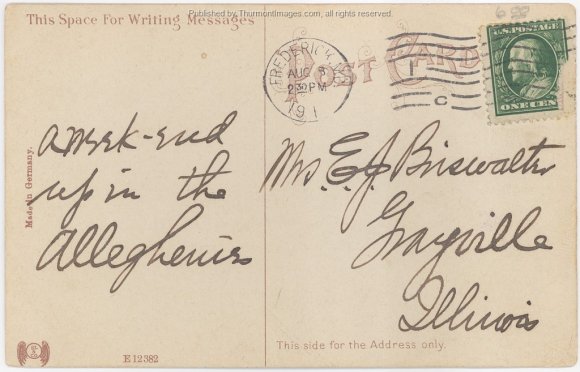 Published by ThurmontImages.com, all rights reserved.
This Space For Writing Messages
POST CARD
FREDERICK, MD.
AUG 8
2 30 PM
191
1
C
U.S. POSTAGE
ONE CENT
a week-end
up in the
Alleghenies
Made in Germany.
E 12382
Mrs. E. J. Briswalter
Grayville
Illinois
This side for the Address only.